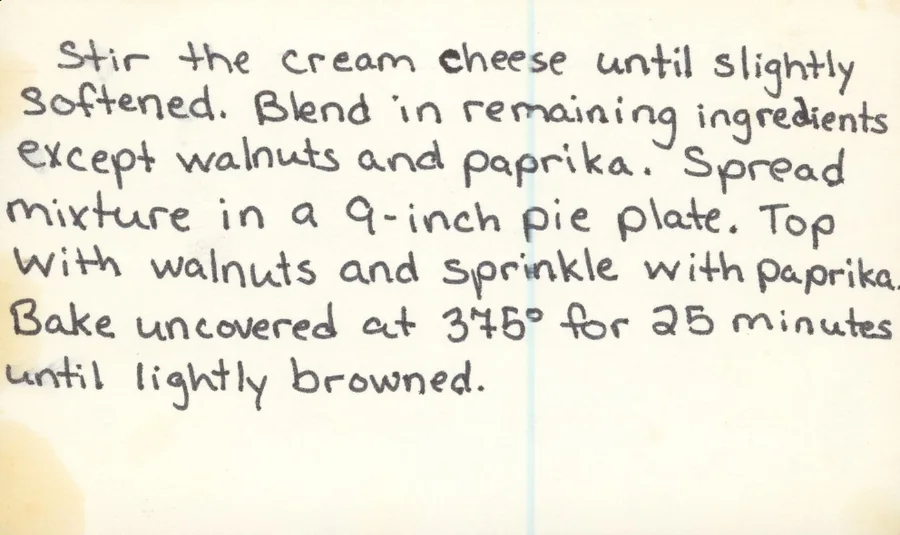 Stir the cream cheese until slightly
softened. Blend in remaining ingredients
except walnuts and paprika. Spread
mixture in a 9-inch pie plate. Top
with walnuts and sprinkle with paprika.
Bake uncovered at 375° for 25 minutes
until lightly browned.